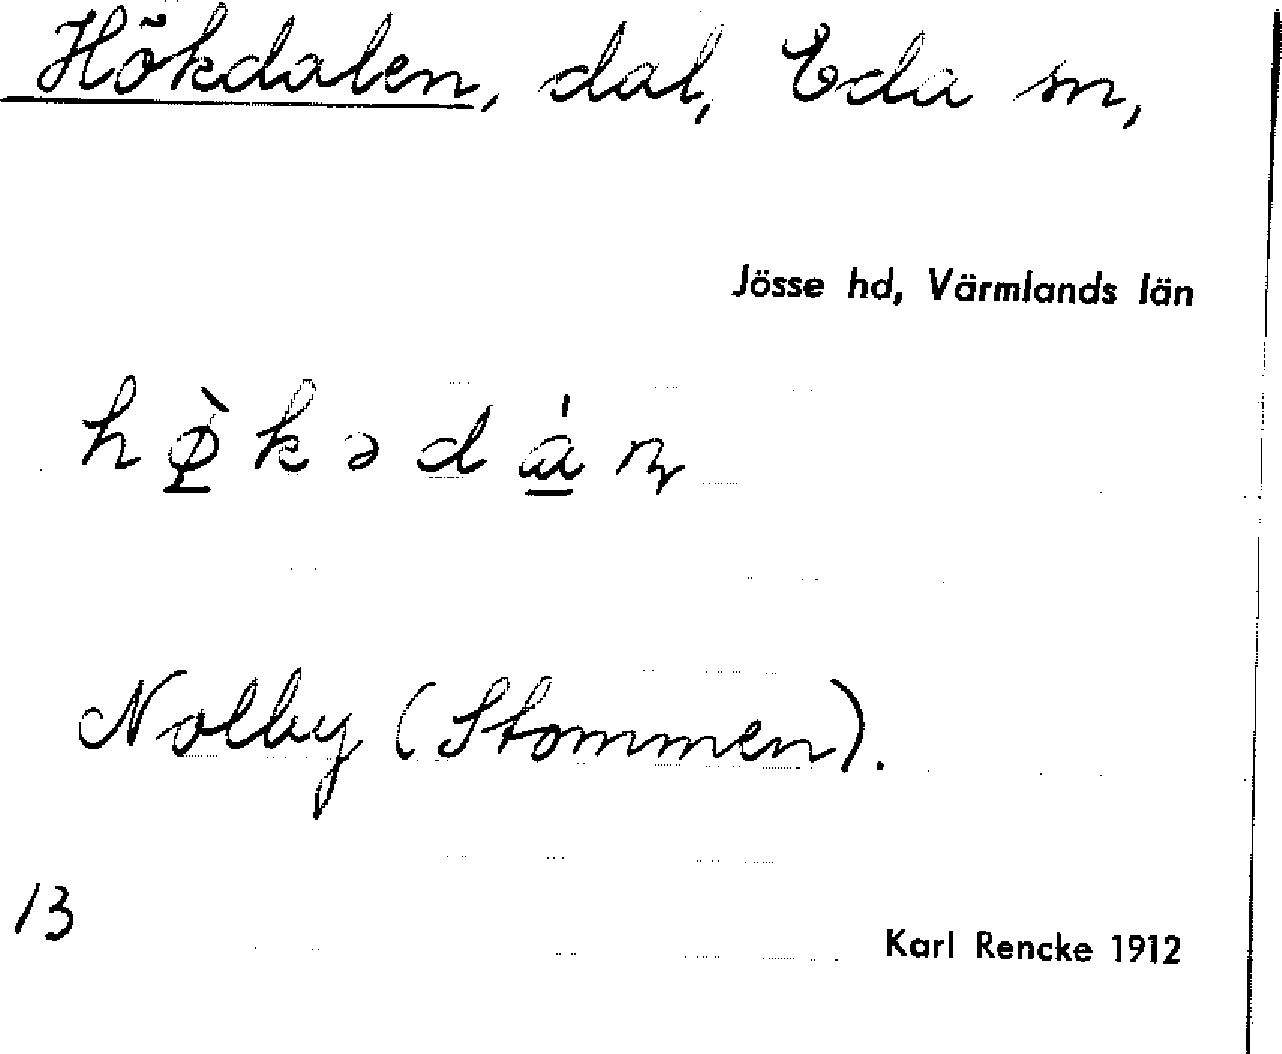 Hökdalen, dal, Eda sn,
Jösse hd, Värmlands län
hø̱̀kədá̱ɳ
Nolby (Stommen).
13
Karl Rencke 1912